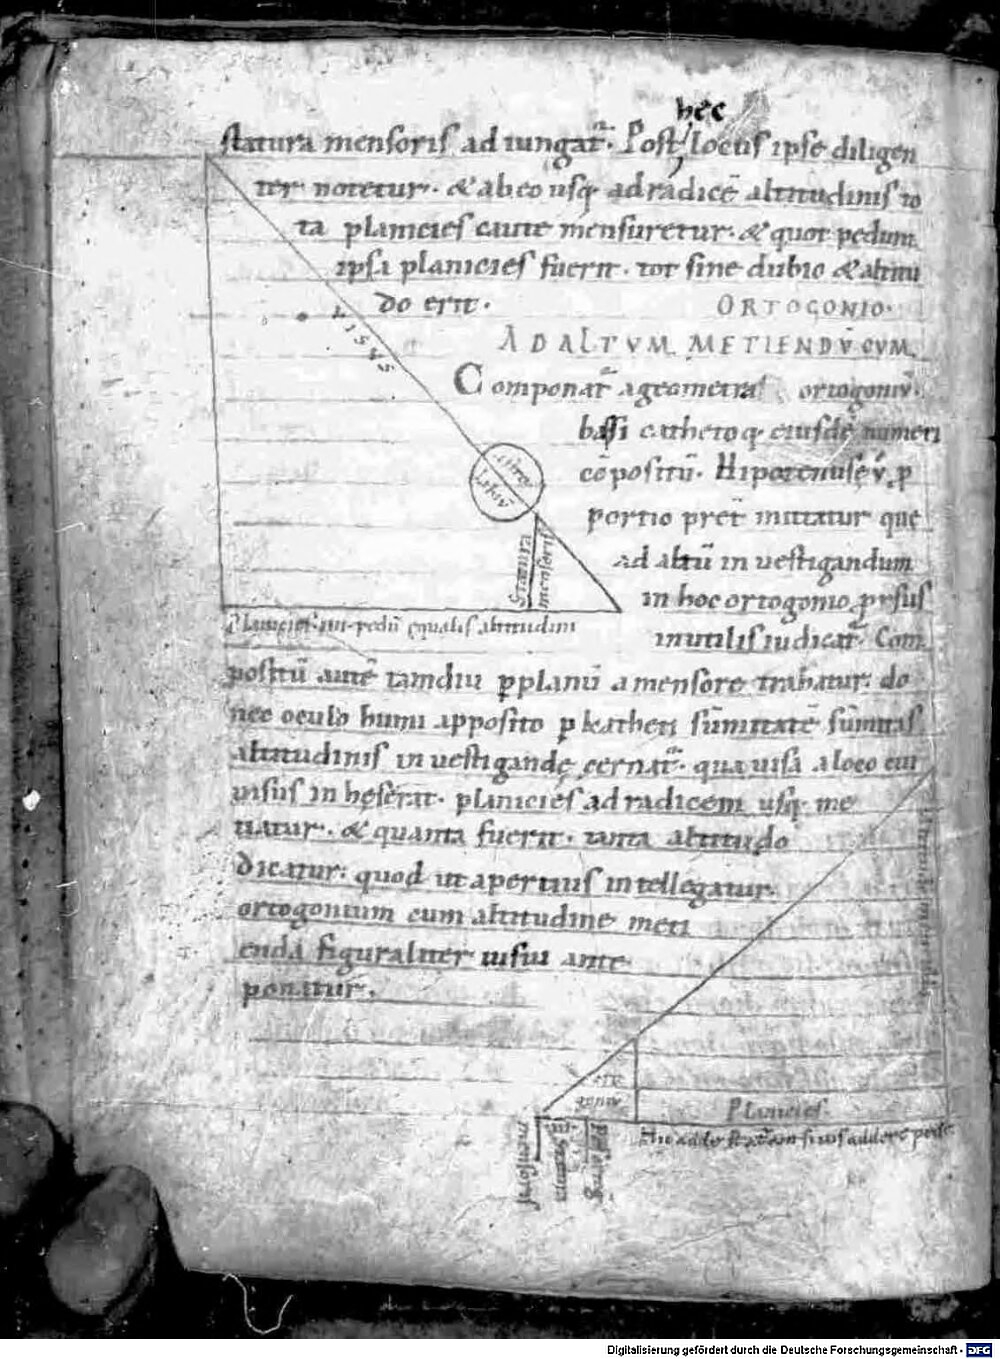 hec
statura mensoris ad iungat᷑. Post locus ipse diligen
ter notetur. & ab eo usq; ad radicē altitudinis to
ta planicies caute mensuretur. & quot pedum
ipsa planicies fuerit. tot sine dubio & altitu
do erit.
ORTOGONIO.
AD ALTVM METIENDV̄ CVM
Componat᷑ a geometra ortogoniū.
basi cathetoq; eiusdē numeri
cōpositū. Hipotenusę v̄ p
portio pret᷑mittatur quę
ad altū in vestigandum
in hoc ortogonio prsus
inutilis iudicat᷑. Com
positū autē tamdiu p planū a mensore trahatur: do
nec oculo humi apposito p katheti sūmitatē sūmitas
altitudinis in vestigandę cernat᷑. qua uisa a loco cui
uisus in hęserat. planicies ad radicem usq; me
tiatur. & quanta fuerit. tanta altitudo
dicatur: quod ut apertius intellegatur.
ortogonium cum altitudine meti
enda figuraliter uisui ante
ponatur.
Visus
Statura
mensoris
Planicies pedū equalis altitudini
Planicies.
Hic adde staturam si uis addere pede
mensoris